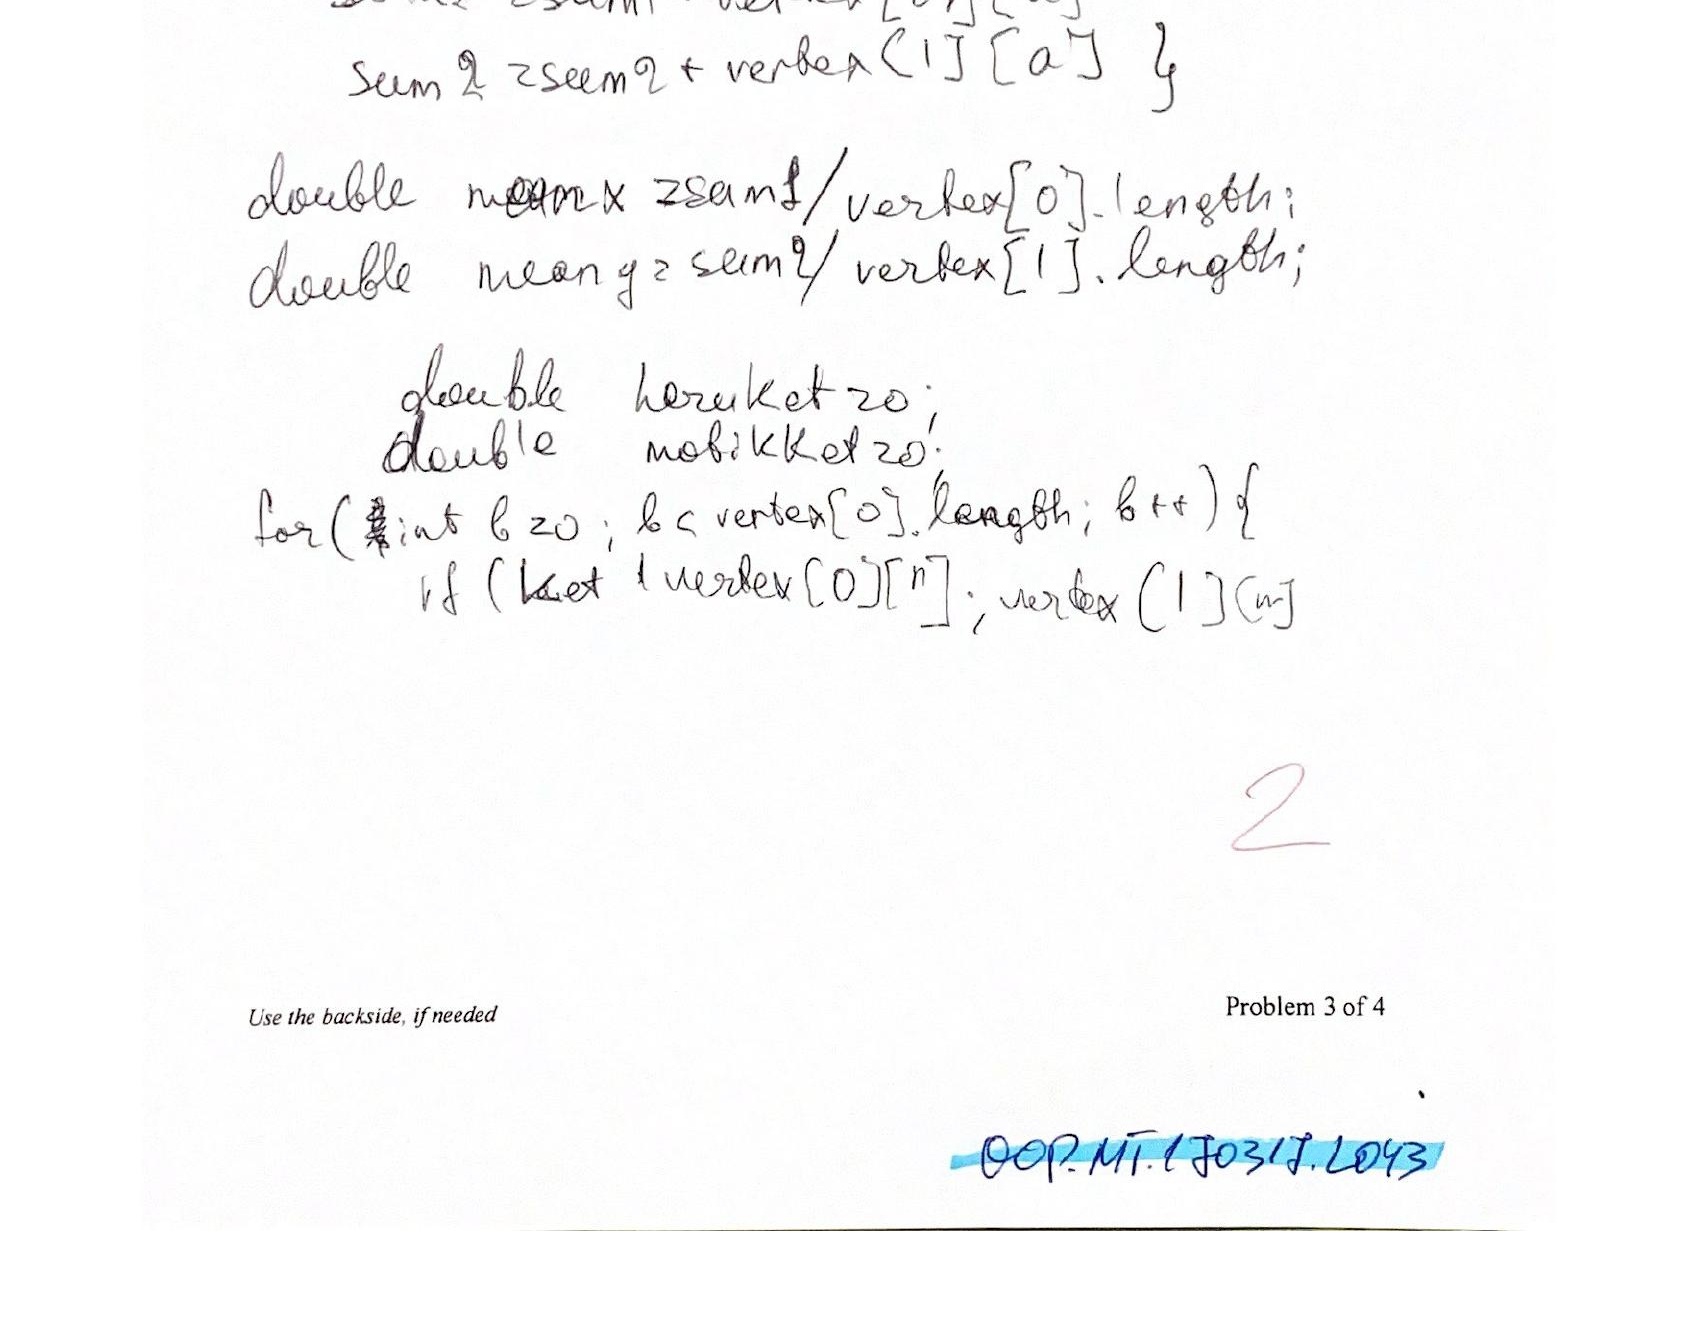 sum2 = sum2 + vertex[1][a] }
double meanx = sum1/vertex[0].length;
double meany = sum2/vertex[1].length;
double heruket = 0;
double motikket = 0;
for(int b = 0; b < vertex[0].length; b++){
if (ket 1 vertex[0][n]; vertex[1][n]
2
Use the backside, if needed
Problem 3 of 4
OOP.MT.170317.L043